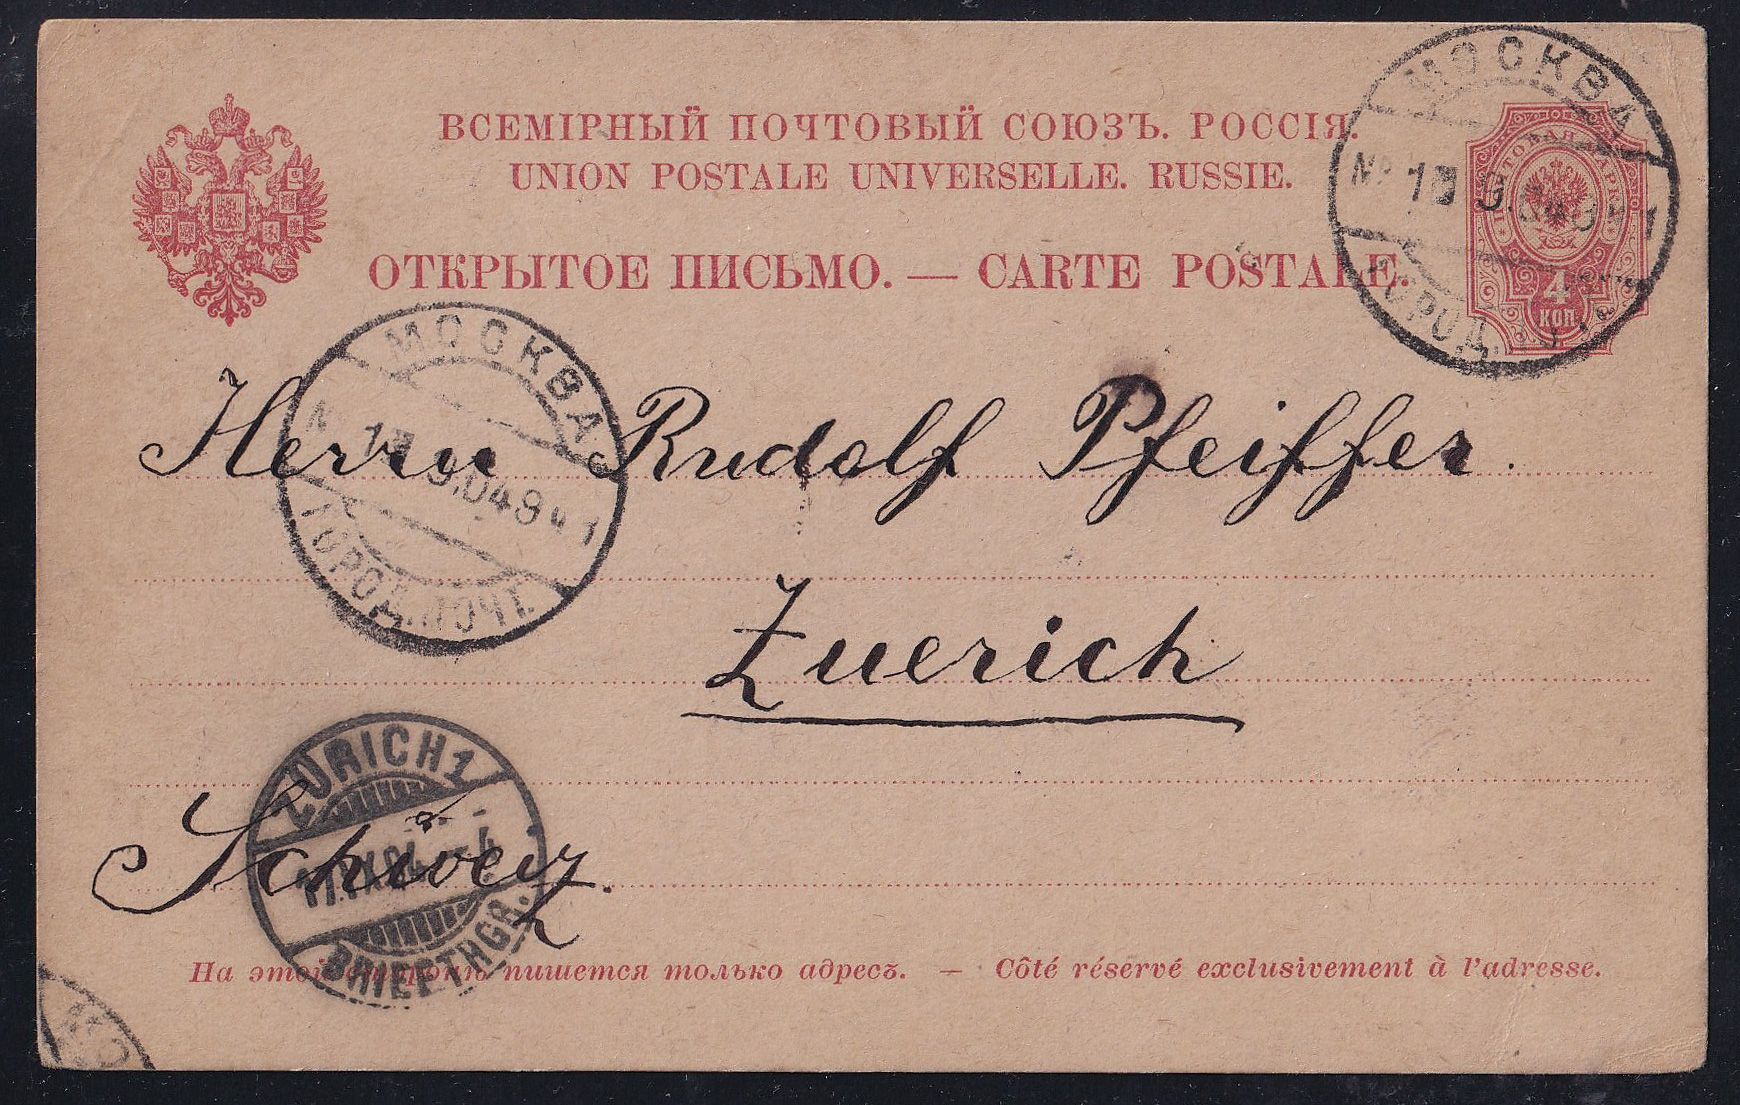 ВСЕМІРНЫЙ ПОЧТОВЫЙ СОЮЗЪ. РОССІЯ.
UNION POSTALE UNIVERSELLE. RUSSIE.
ОТКРЫТОЕ ПИСЬМО. — CARTE POSTALE.
МОСКВА
4
КОП.
МОСКВА
ГОРОД. ПОЧТ.
Herrn Rudolf Pfeiffer.
Zuerich
ZÜRICH 1
BRIEFTRGR.
Schweiz.
На этой сторонѣ пишется только адресъ. — Côté réservé exclusivement à l'adresse.